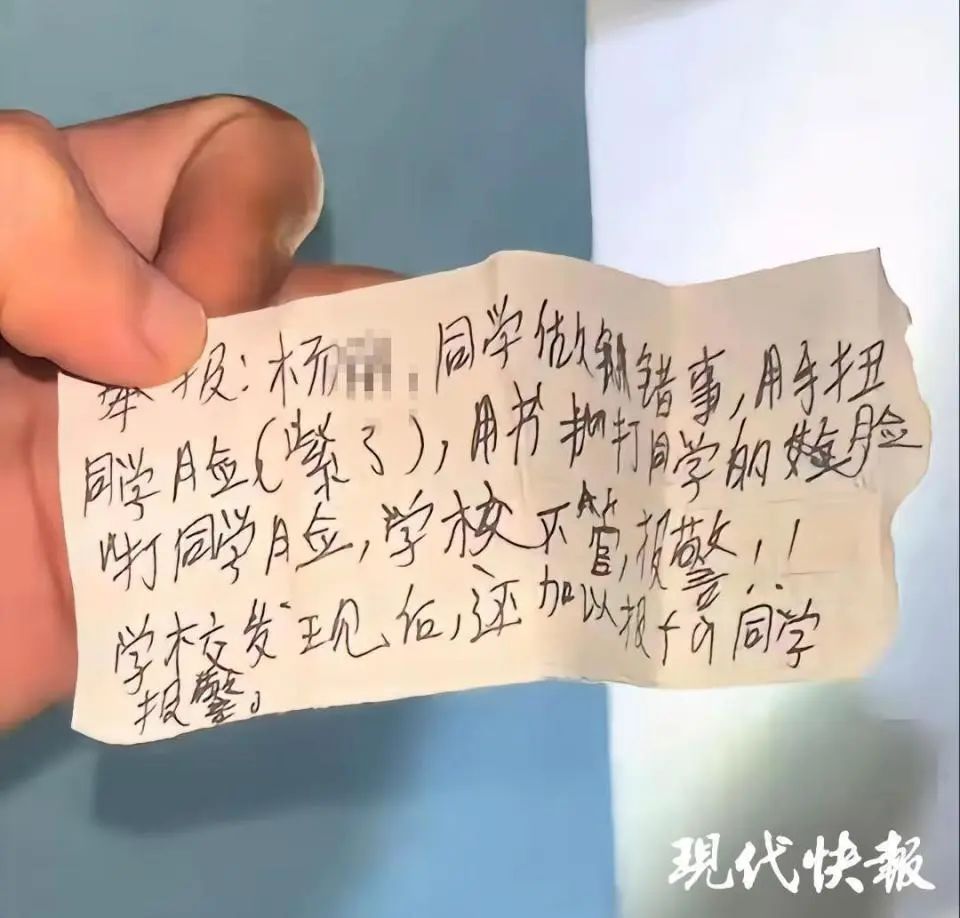 举报:杨 . 同学做错事,用手扭
同学脸(紫了),用书打同学的脸
打同学脸,学校不管,报警!!
学校发现后,还加以报 同学
报警。
現代快報